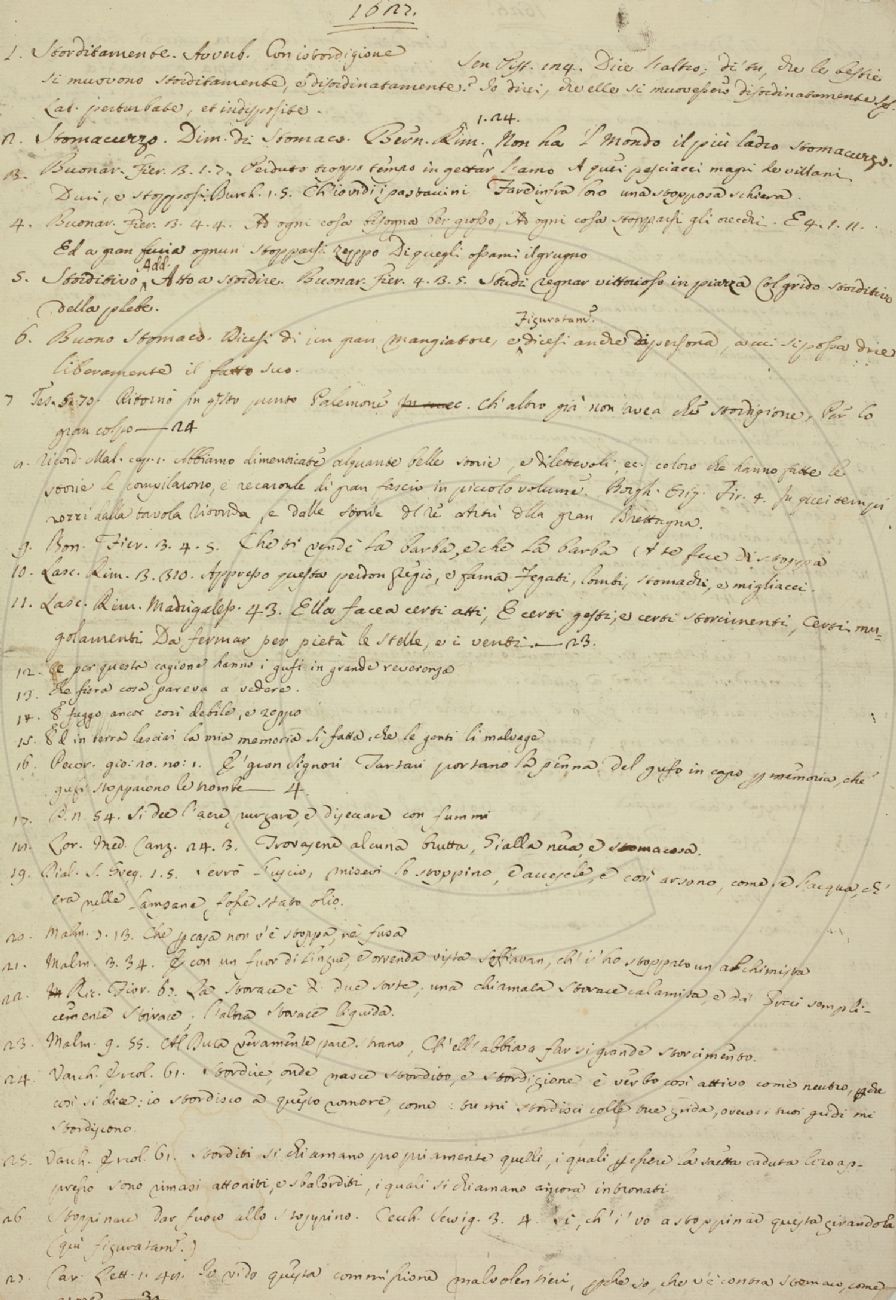 1622.
1. Storditamente. Avverb. Con istordigione Sen. Pist. 124. Dice l'altro; di' tu, che le bestie
si muovono storditamente, e disordinatamente? Io dico, che elle si muovessero disordinatamente
Lat. perturbate, et indisposite.
1.24.
2. Stomacuzzo. Dim. di Stomaco. Bern. Rim. Non ha 'l Mondo il più ladro stomacuzzo.
3. Buonar. Fier. 3. 1. 7. Perduto troppo tempo in gettar l'amo A quei pesciacci magri de villani
Duri, e stopposi. Burch. 1. 5. Chiovidi i pastaccini Fardinsia loro una stopposa schiera.
4. Buonar. Fier. 3. 4. 4. Ad ogni cosa bisogna osso, Ad ogni cosa stopparsi gli orecchi. E 4. 1. 11.
Ed a gran furia ognun stopparsi zeppo Di quegli ossami il grugno
Add.
5. Storditivo Atto a stordire. Buonar. Fier. 4. 3. 5. Studi regnar vittorioso in piazza Col grido storditivo
della plebe.
Figuratam.e
6. Buono Stomaco. Dicesi di un gran mangiatore, e dicesi anche di persona, a cui si possa dire
liberamente il fatto suo.
7 Tes. 5. 70. Ritornò in q.sto punto Palemone ec. Ch'altro già non avea che stordigione, Per lo
gran colpo — 24
8. Ricord. Mal. cap. 1. Abbiamo dimenticate alquante belle storie, e dilettevoli, ec. coloro che hanno fatte le
storie le compilarono, e recaronle di gran fascio in piccolo volume. Borgh. Orig. Fir. 4. In quei tempi
rozzi dalla tavola ritonda, e dalle storie del Re Artù della gran Brettagna.
9. Bon. Fier. 3. 4. 5. Che ti vende la barba, e che la barba A te fece di stoppa
10. Lasc. Rim. 3. 310. Appresso questa perdon pregio, e fama Fegati, lombi, stomachi, e migliacci.
11. Lasc. Rim. Madrigaless. 43. Ella facea certi atti, E certi gesti, e certi storcimenti, Certi mu-
golamenti Da fermar per pietà le stelle, e i venti. — 23.
12. E per questa cagione hanno i gufi in grande reverenza
13. Che fiera cosa pareva a vedere.
14. E fuggo ancor così debile, e zoppo
15. Ed in terra lasciai la mia memoria Sì fatta, che le genti lì malvage
16. Pecor. gio. 20. no: 1. E' gran Signori Tartari portano la penna del gufo in capo p memoria, che'
gufi stopparono le trombe — 4.
17. P. N. 54. Si dee l'aere purgare, e diseccare con fummi
18. Lor. Med. Canz. 24. 3. Trovasene alcuna brutta, Gialla nera, e stomacosa.
19. Dial. S. Greg. 1. 5. Verrò Luscio, misevi lo stoppino, e accesele, e così arsono, come se l'acqua, ch'
era nelle lampane, fosse stato olio.
20. Malm. 7. 13. Che p casa non v'è stoppa, nè fusa
21. Malm. 3. 34. E con un fuor di lingua, e orrenda vista Schiavan, ch'i' ho stoppato un alchimista
22. Ric. Fior. 67. La Storace è di due sorte, una chiamata storace calamita, e da' Greci sempli-
cemente storace; l'altra storace liquida.
23. Malm. 9. 55. Al Duca veramente pare strano, Ch'ell'abbia a far sì grande storcimento.
24. Varch. Ercol. 61. Stordire, onde nasce stordito, e stordigione è verbo così attivo come neutro, p che
così si dice: io stordisco a questo romore, come: tu mi stordisci colle tue grida, ovvero i tuoi gridi mi
stordiscono.
25. Varch. Ercol. 61. Storditi si chiamano propriamente quelli, i quali p essere la saetta caduta loro ap-
presso sono rimasi attoniti, e sbalorditi, i quali si chiamano ancora intronati
26 Stoppinare Dar fuoco allo stoppino. Cecch. Servig. 3. 4. Sì, ch'i' vo a stoppinar questa girandola
(qui figuratam.e)
27. Car. Lett. 1. 49. Io vido questa commissione malvolentieri, p che so, che v'è contra stomaco, come